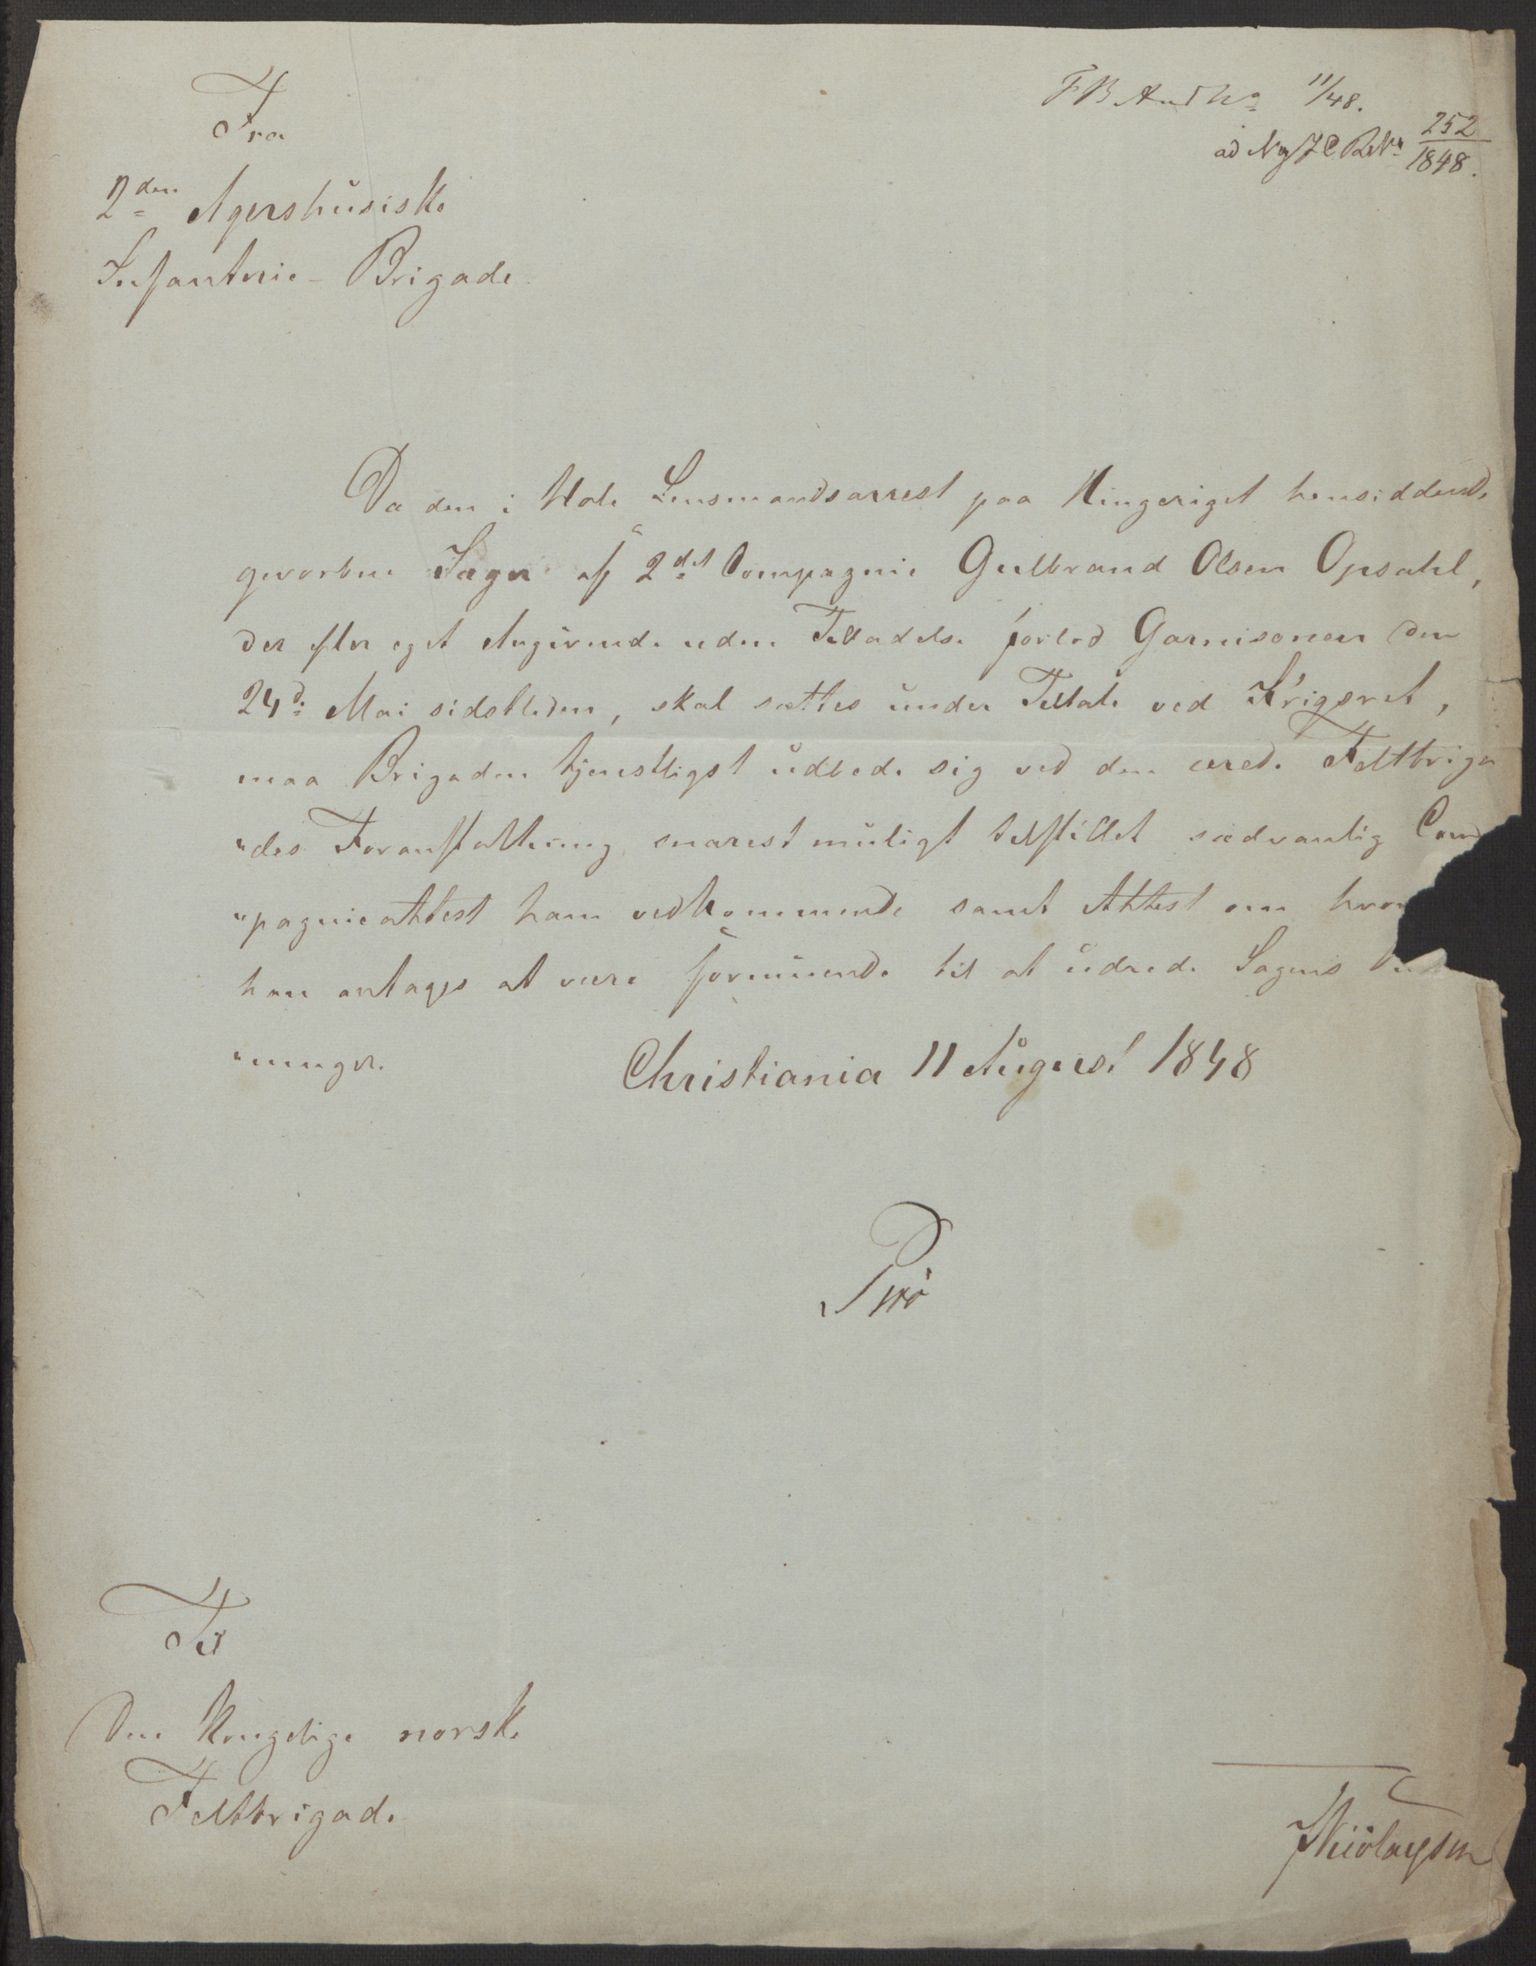 Fra
2den Agershusiske
Infanterie-Brigade
11/48.
ad 252
1848.
Da den i Hole Lensmandsarrest paa Ringeriget hensiddende
gevorbne Jæger af 2det Compagnie Gulbrand Olsen Opsahl,
der efter eget Angivende uden Tilladelse forlod Garnisonen den
24d: Mai sidstleden, skal sættes under Tiltale ved Krigsret,
maa Brigaden tjenstligst udbede sig ved den ærede Feltbriga
"des Foranstaltning snarest muligt tilstillet sædvanlig Com
"pagnieattest ham vedkommende samt Attest om hvor
han antages at være formuende til at udrede Sagens
"ninger.
Christiania 11 August 1848
Til
Den Kongelige norske
Feltbrigade